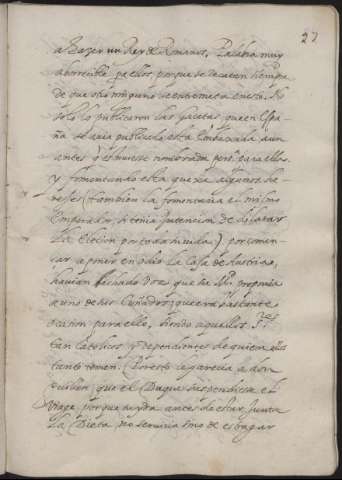 27
a hazer un Rey de Romanos, Palabra muy
aborrecible pª ellos, porque se recaten siempre
de que otro ninguno se entrometa en esto. No
solo lo publicaron las gacetas, que en Espa-
ña se avia publicado esta Embaxada aun
antes q estuviese nombrada persª para ella,
y fomentando esta quexa algunos he-
rejes (tambien la fomentaria el mismo
Emperador si tenia intencion de dilatar
la Election por toda su vida) por comen-
çar a poner en odio la Casa de Austria,
havian hechado Voz que Su Mgd proponia
a uno de sus Cuñados; que era bastante
ocasion para ello, siendo aquellos
tan Catolicos, y dependientes de quien ellos
tanto temen. Por esto le parecia a don
que el Duque suspendiese el
Viage, porque su yda antes de estar junta
la Dieta, no serviria sino de